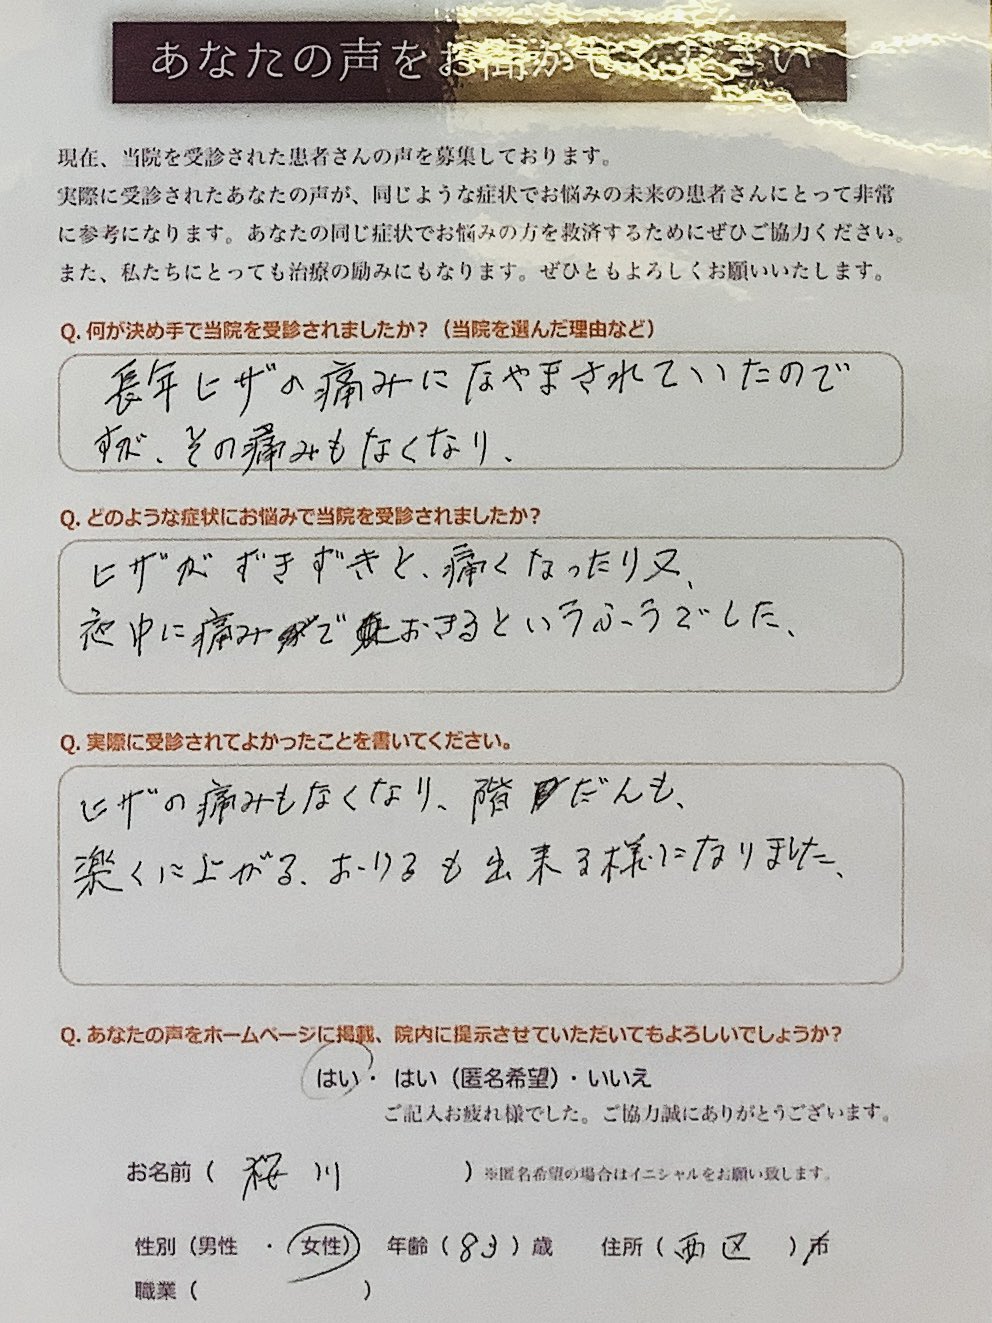 あなたの声をお聞かせください
現在、当院を受診された患者さんの声を募集しております。
実際に受診されたあなたの声が、同じような症状でお悩みの未来の患者さんにとって非常
に参考になります。あなたの同じ症状でお悩みの方を救済するためにぜひご協力ください。
また、私たちにとっても治療の励みにもなります。ぜひともよろしくお願いいたします。
Q. 何が決め手で当院を受診されましたか？（当院を選んだ理由など）
長年ヒザの痛みになやまされていたので
すが、その痛みもなくなり、
Q. どのような症状にお悩みで当院を受診されましたか？
ヒザがずきずきと、痛くなったり又、
夜中に痛みでおきるというふうでした、
Q. 実際に受診されてよかったことを書いてください。
ヒザの痛みもなくなり、階だんも、
楽くに上がる、おりるも出来る様になりました、
Q. あなたの声をホームページに掲載、院内に提示させていただいてもよろしいでしょうか？
はい・ はい（匿名希望）・いいえ
ご記入お疲れ様でした。ご協力誠にありがとうございます。
お名前（ 桜川 ）※匿名希望の場合はイニシャルをお願い致します。
性別（男性 ・ 女性） 年齢（83）歳 住所（西区）市
職業（ ）